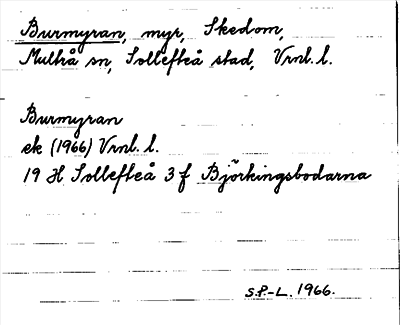 Burmyran, myr, Skedom,
Multrå sn, Sollefteå stad, Vrnl. l.
Burmyran
ek (1966) Vrnl. l.
19 H Sollefteå 3 f Björkingsbodarna
S.P.-L. 1966.